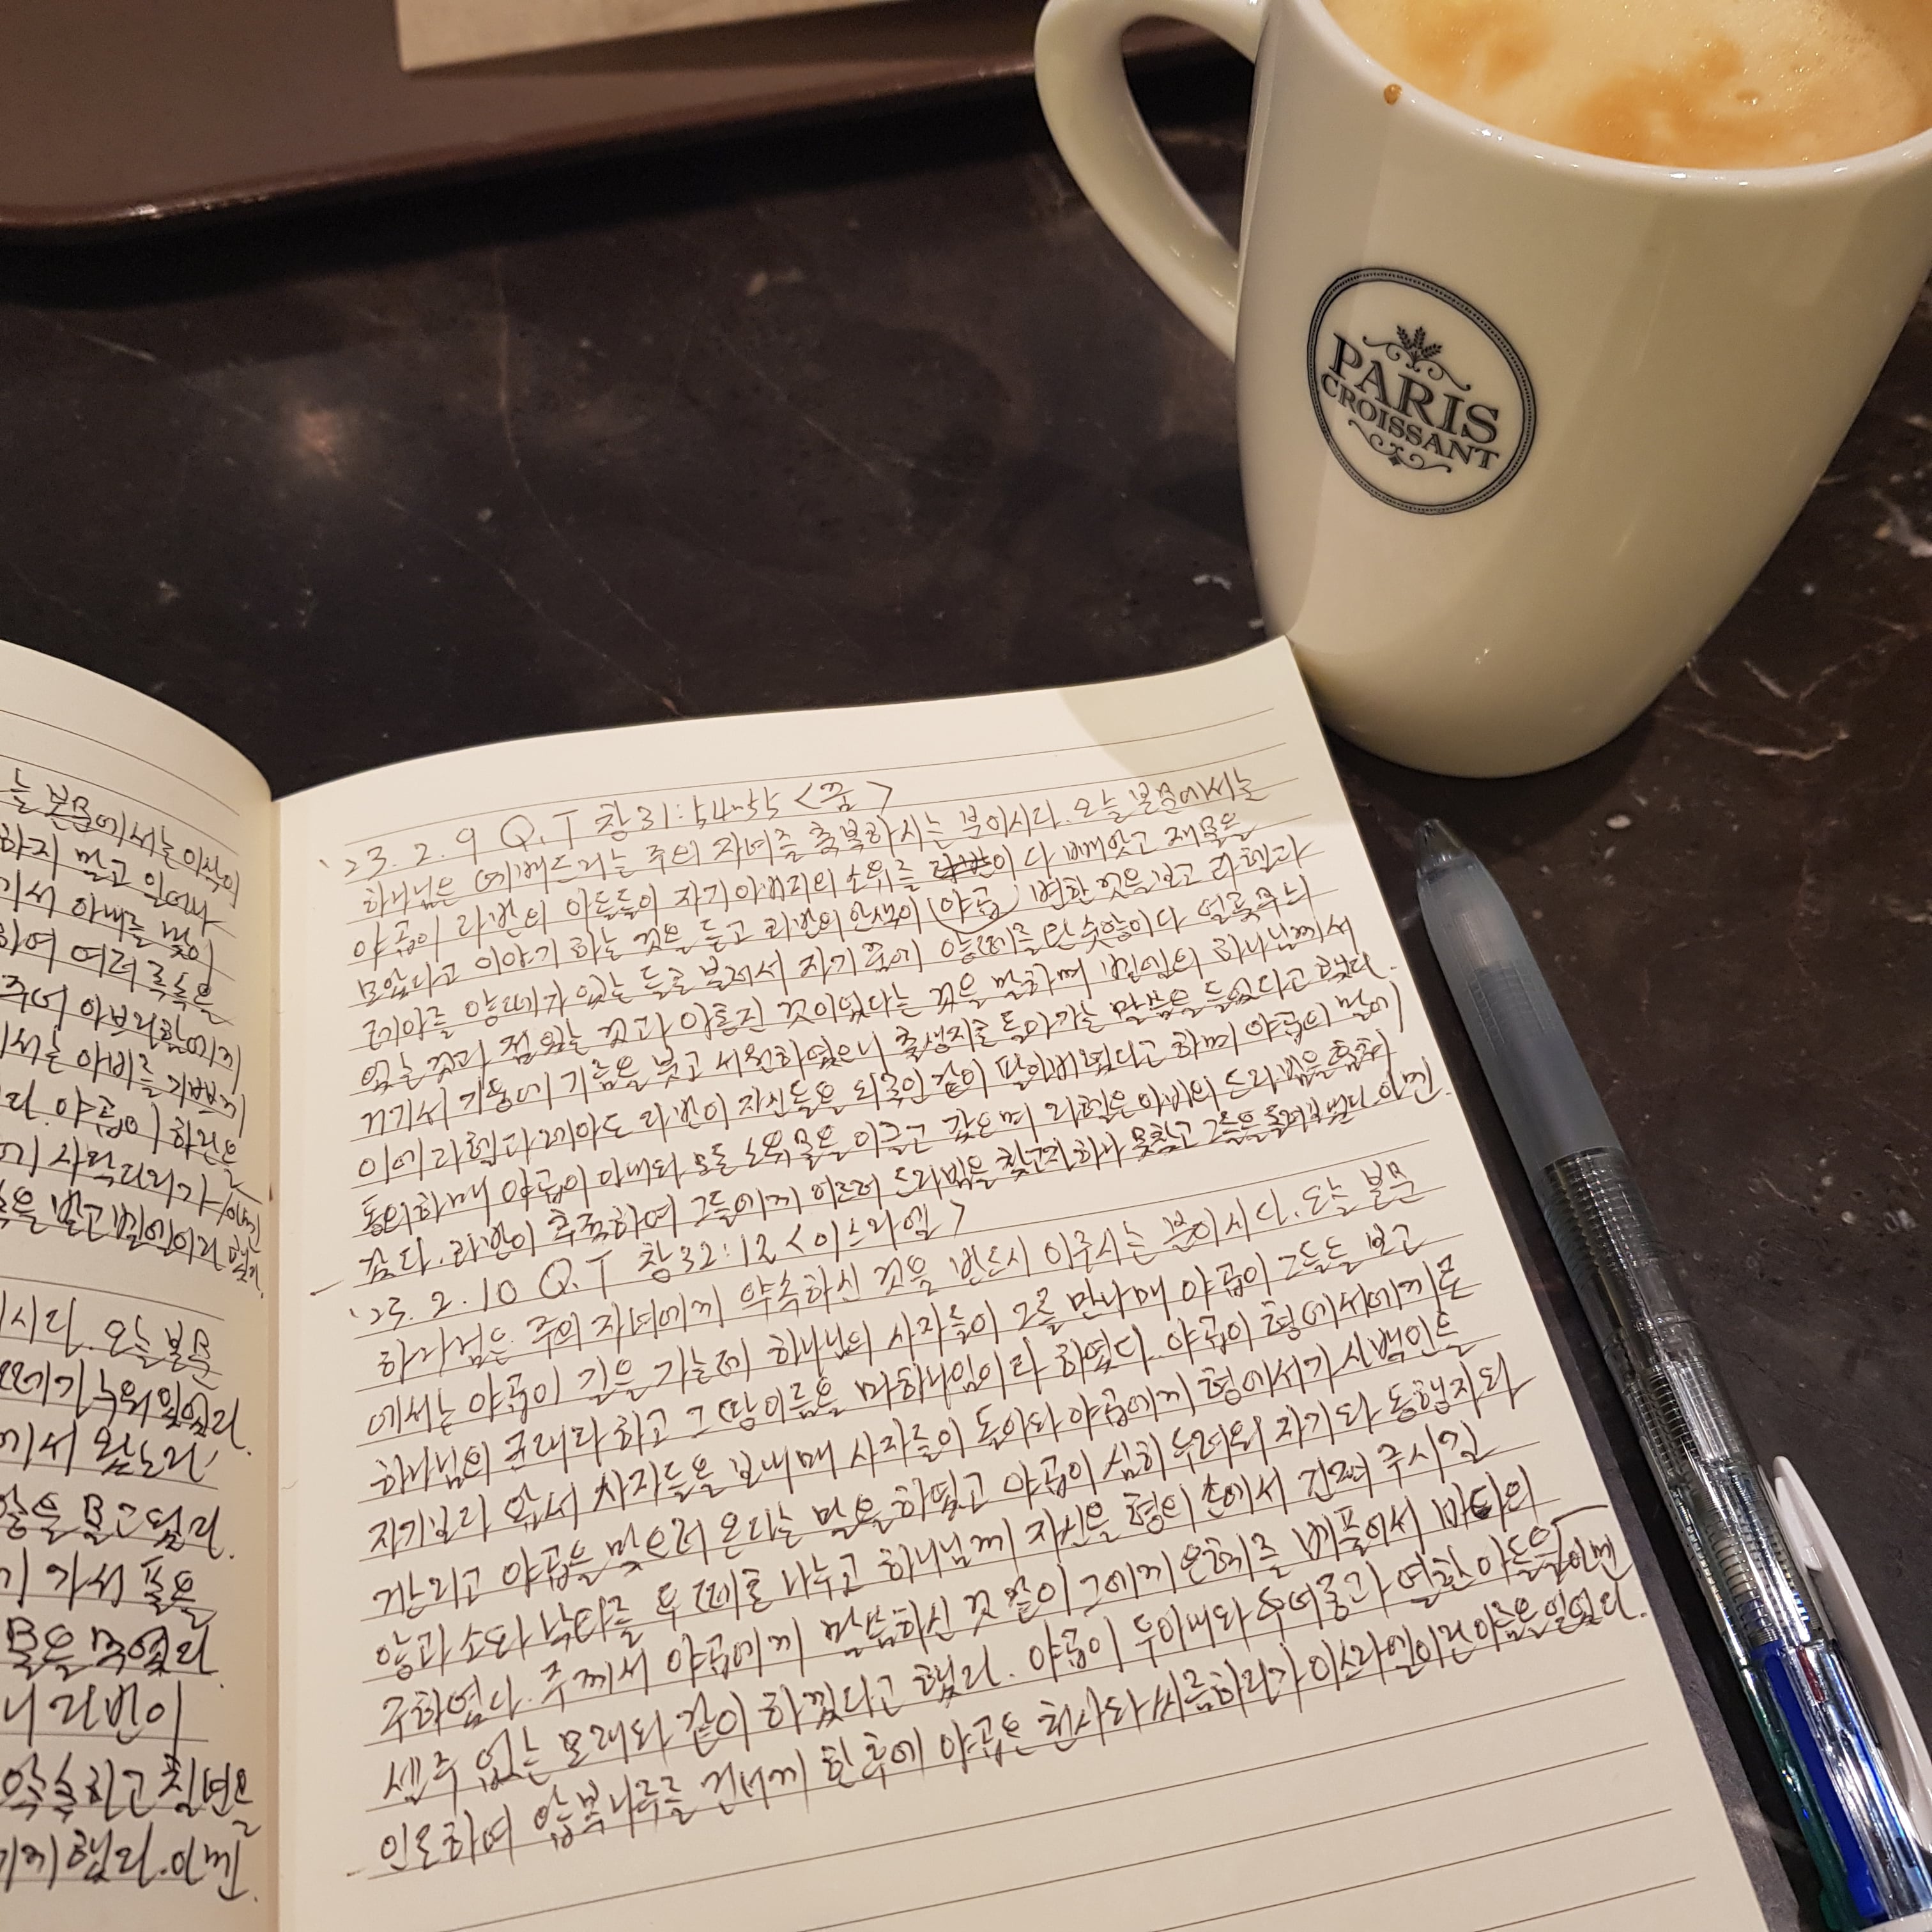 PARIS
CROISSANT
'23. 2. 9 Q.T 창31:54-55 <꿈>
하나님은 예배드리는 주의 자녀를 축복하시는 분이시다. 오늘 본문에서는
야곱이 라반의 아들들이 자기 아버지의 소유를 다 빼앗고 재물을
모았다고 이야기 하는 것을 듣고 라반의 안색이 (야곱) 변한 것을 보고 라헬과
레아를 양떼가 있는 들로 불러서 자기 꿈에 양떼를 탄 숫양이 다 얼룩무늬
있는 것과 점 있는 것과 아롱진 것이었다는 것을 말하며 벧엘의 하나님께서
거기서 기둥에 기름을 붓고 서원하였으니 출생지로 돌아가는 말씀을 들었다고 했다.
이에 라헬과 레아도 라반이 자신들을 외국인 같이 팔아버렸다고 하며 야곱의 말에
동의하매 야곱이 아내와 모든 소유물을 이끌고 갔으며 라헬은 아비의 드라빔을 훔쳐
갔다. 라반이 추적하여 그들에게 이르러 드라빔을 찾고자 하나 못찾고 그들을 돌려보냈다. 아멘.
'23. 2. 10 Q.T 창32:12 <이스라엘>
하나님은 주의 자녀에게 약속하신 것을 반드시 이루시는 분이시다. 오늘 본문
에서는 야곱이 길을 가는데 하나님의 사자들이 그를 만나매 야곱이 그들을 보고
하나님의 군대라 하고 그 땅 이름을 마하나임이라 하였다. 야곱이 형 에서에게로
자기보다 앞서 사자들을 보내매 사자들이 돌아와 야곱에게 형 에서가 사백인을
거느리고 야곱을 맞으러 온다는 말을 하였고 야곱이 심히 두려워 자기와 동행자와
양과 소와 낙타를 두 떼로 나누고 하나님께 자신을 형의 손에서 건져 주시길
구하였다. 주께서 야곱에게 말씀하신 것 같이 그에게 은혜를 베풀어서 바다의
셀 수 없는 모래와 같이 하겠다고 했다. 야곱이 두 아내와 두 여종과 열한 아들을 아멘
인도하여 얍복나루를 건너게 한 후에 야곱은 천사와 씨름하다가 이스라엘이란 이름을 얻었다.
늘 본문에서는 이삭이
하지 말고 일어나
기서 아내를 맞이
하여 여러 족속을
주어 아브라함에게
서는 아비를 기쁘게
다. 야곱이 하란을
에 사닥다리가
을 쌓고 벧엘이라 했다. 아멘
시다. 오늘 본문
떼가 누워 있었다.
에서 왔노라
양을 몰고 왔다.
가서 풀을
물을 먹였다.
니 라반이
약속하고 칠년을
게 했다. 아멘.